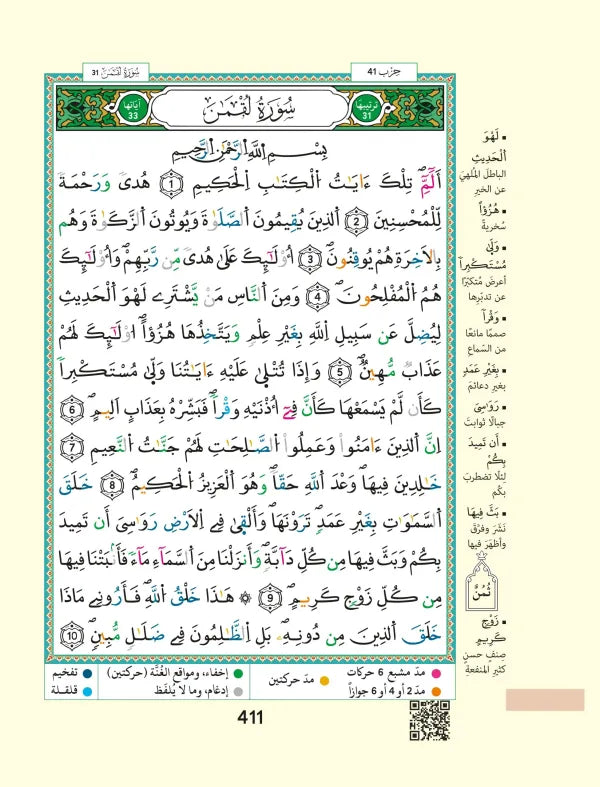 سُورَةُ لُقْمَٰنَ 31
حِزْب 41
آيَاتها 33
سُورَةُ لُقْمَٰنَ
تَرتيبُها 31
بِسْمِ اِ۬للَّهِ اِ۬لرَّحْمَٰنِ اِ۬لرَّحِيمِ
أَلَٓمِّٓۖ تِلْكَ ءَايَٰتُ اُ۬لْكِتَٰبِ اِ۬لْحَكِيمِ 1 هُدىٗ وَرَحْمَةٗ
لِّلْمُحْسِنِينَ 2 اَ۬لذِينَ يُقِيمُونَ اَ۬لصَّلَوٰةَ وَيُوتُونَ اَ۬لزَّكَوٰةَ وَهُم
بِالَاخِرَةِ هُمْ يُوقِنُونَۖ 3 أُوْلَٰٓئِكَ عَلَىٰ هُدىٗ مِّن رَّبِّهِمْۖ وَأُوْلَٰٓئِكَ
هُمُ اُ۬لْمُفْلِحُونَۖ 4 وَمِنَ اَ۬لنَّاسِ مَنْ يَّشْتَرِے لَهْوَ اَ۬لْحَدِيثِ
لِيُضِلَّ عَن سَبِيلِ اِ۬للَّهِ بِغَيْرِ عِلْمٖ وَيَتَّخِذُهَا هُزُؤاًۖ اُوْلَٰٓئِكَ لَهُمْ
عَذَابٞ مُّهِينٞۖ 5 وَإِذَا تُتْلَىٰ عَلَيْهِ ءَايَٰتُنَا وَلَّىٰ مُسْتَكْبِراٗ
كَأَن لَّمْ يَسْمَعْهَا كَأَنَّ فِےٓ أُذْنَيْهِ وَقْراٗۖ فَبَشِّرْهُ بِعَذَابٍ اَلِيمٍۖ 6
اِنَّ اَ۬لذِينَ ءَامَنُواْ وَعَمِلُواْ اُ۬لصَّٰلِحَٰتِ لَهُمْ جَنَّٰتُ اُ۬لنَّعِيمِ 7
خَٰلِدِينَ فِيهَا وَعْدَ اَ۬للَّهِ حَقّاٗۖ وَهُوَ اَ۬لْعَزِيزُ اُ۬لْحَكِيمُۖ 8 خَلَقَ
اَ۬لسَّمَٰوَٰتِ بِغَيْرِ عَمَدٖ تَرَوْنَهَاۖ وَأَلْقَىٰ فِے اِ۬لَارْضِ رَوَٰسِيَ أَن تَمِيدَ
بِكُمْ وَبَثَّ فِيهَا مِن كُلِّ دَآبَّةٖۖ وَأَنزَلْنَا مِنَ اَ۬لسَّمَآءِ مَآءٗ فَأَنۢبَتْنَا فِيهَا
مِن كُلِّ زَوْجٖ كَرِيمٍۖ 9 ۞ هَٰذَا خَلْقُ اُ۬للَّهِۖ فَأَرُونِے مَاذَا
خَلَقَ اَ۬لذِينَ مِن دُونِهِۦۖ بَلِ اِ۬لظَّٰلِمُونَ فِے ضَلَٰلٖ مُّبِينٖۖ 10
▪ لَهْوَ
اَ۬لْحَدِيثِ
الباطلَ المُلْهِيَ
عن الخيرِ
▪ هُزُؤاً
سُخريةً
▪ وَلَّىٰ
مُسْتَكْبِراٗ
أعرضَ مُتكبّرًا
عن تدبّرِها
▪ وَقْراٗ
صممًا مانعًا
من السّماعِ
▪ بِغَيْرِ عَمَدٖ
بغيرِ دعائمَ
▪ رَوَٰسِيَ
جبالًا ثوابتَ
▪ أَن تَمِيدَ
بِكُمْ
لِئلّا تضطربَ
بكُم
▪ بَثَّ فِيهَا
نَشَرَ وفرَّقَ
وأظهرَ فيها
ثُمُنٌ
▪ زَوْجٖ
كَرِيمٍ
صِنفٍ حسنٍ
كثيرِ المنفعةِ
مدّ مشبع 6 حركات
مدّ 2 أو 4 أو 6 جوازاً
مدّ حركتين
إخفاء، ومواقع الغُنَّة (حركتين)
إدغام، وما لا يُلفَظ
تفخيم
قلقلة
411